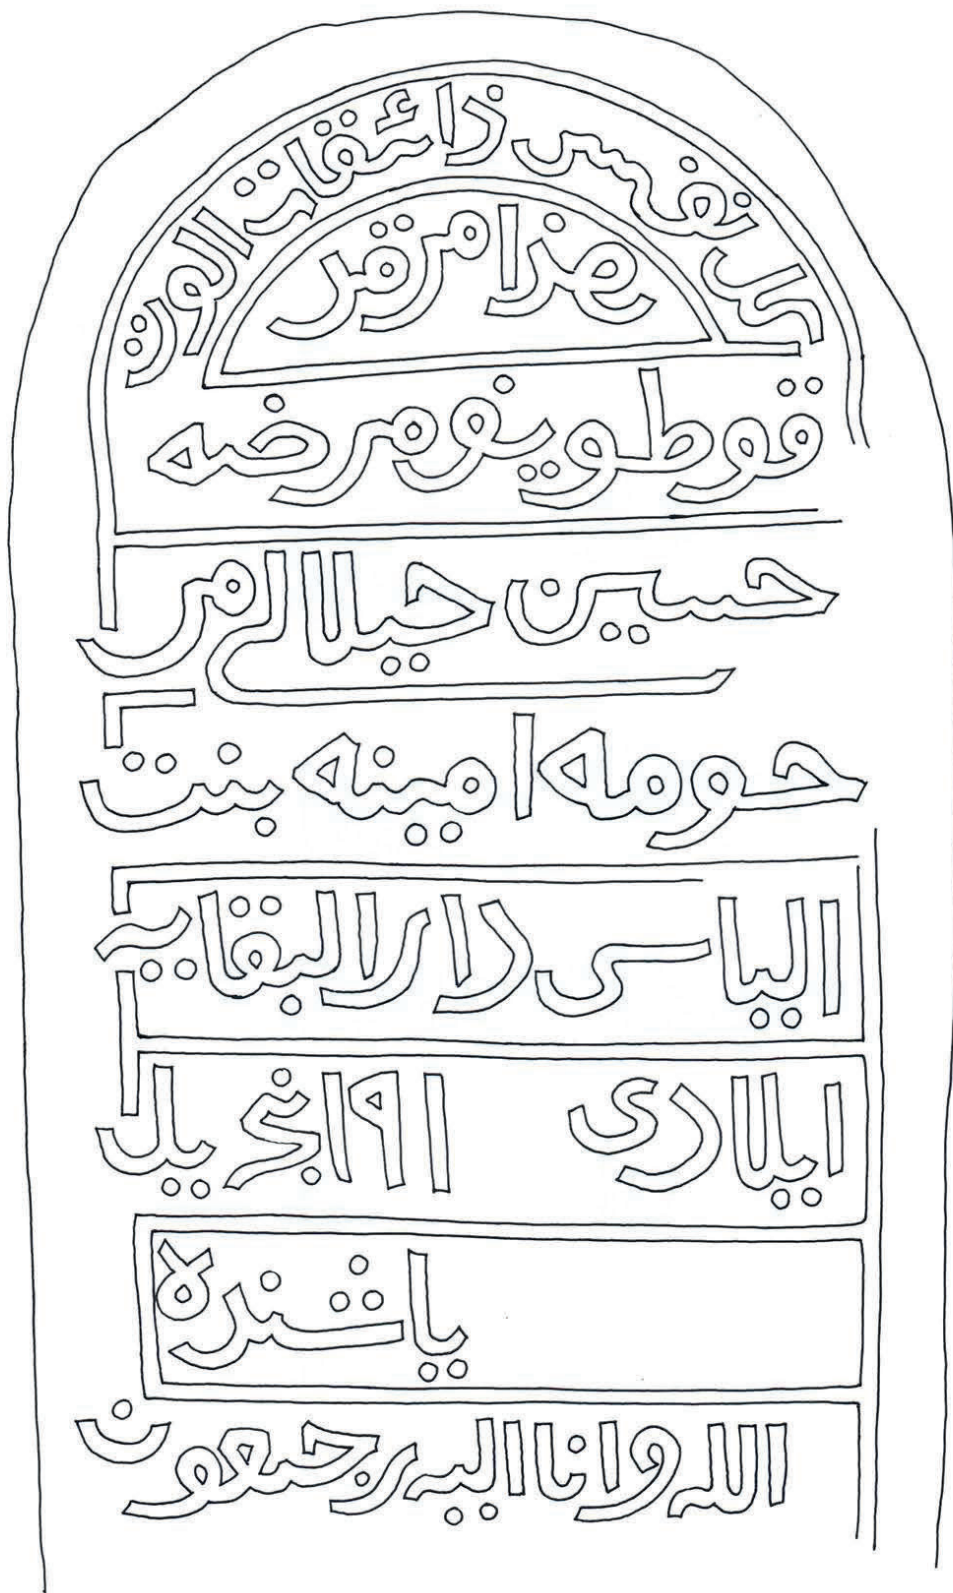 كل نفس ذائقات الوت
هذا مرقد
مرضه
حسين حيلالي مر
حومه امينه بنت
الياس دار البقايه
ايلادى ١٩١ نجى يل
ياشنده
الله وانا اليه رجعون